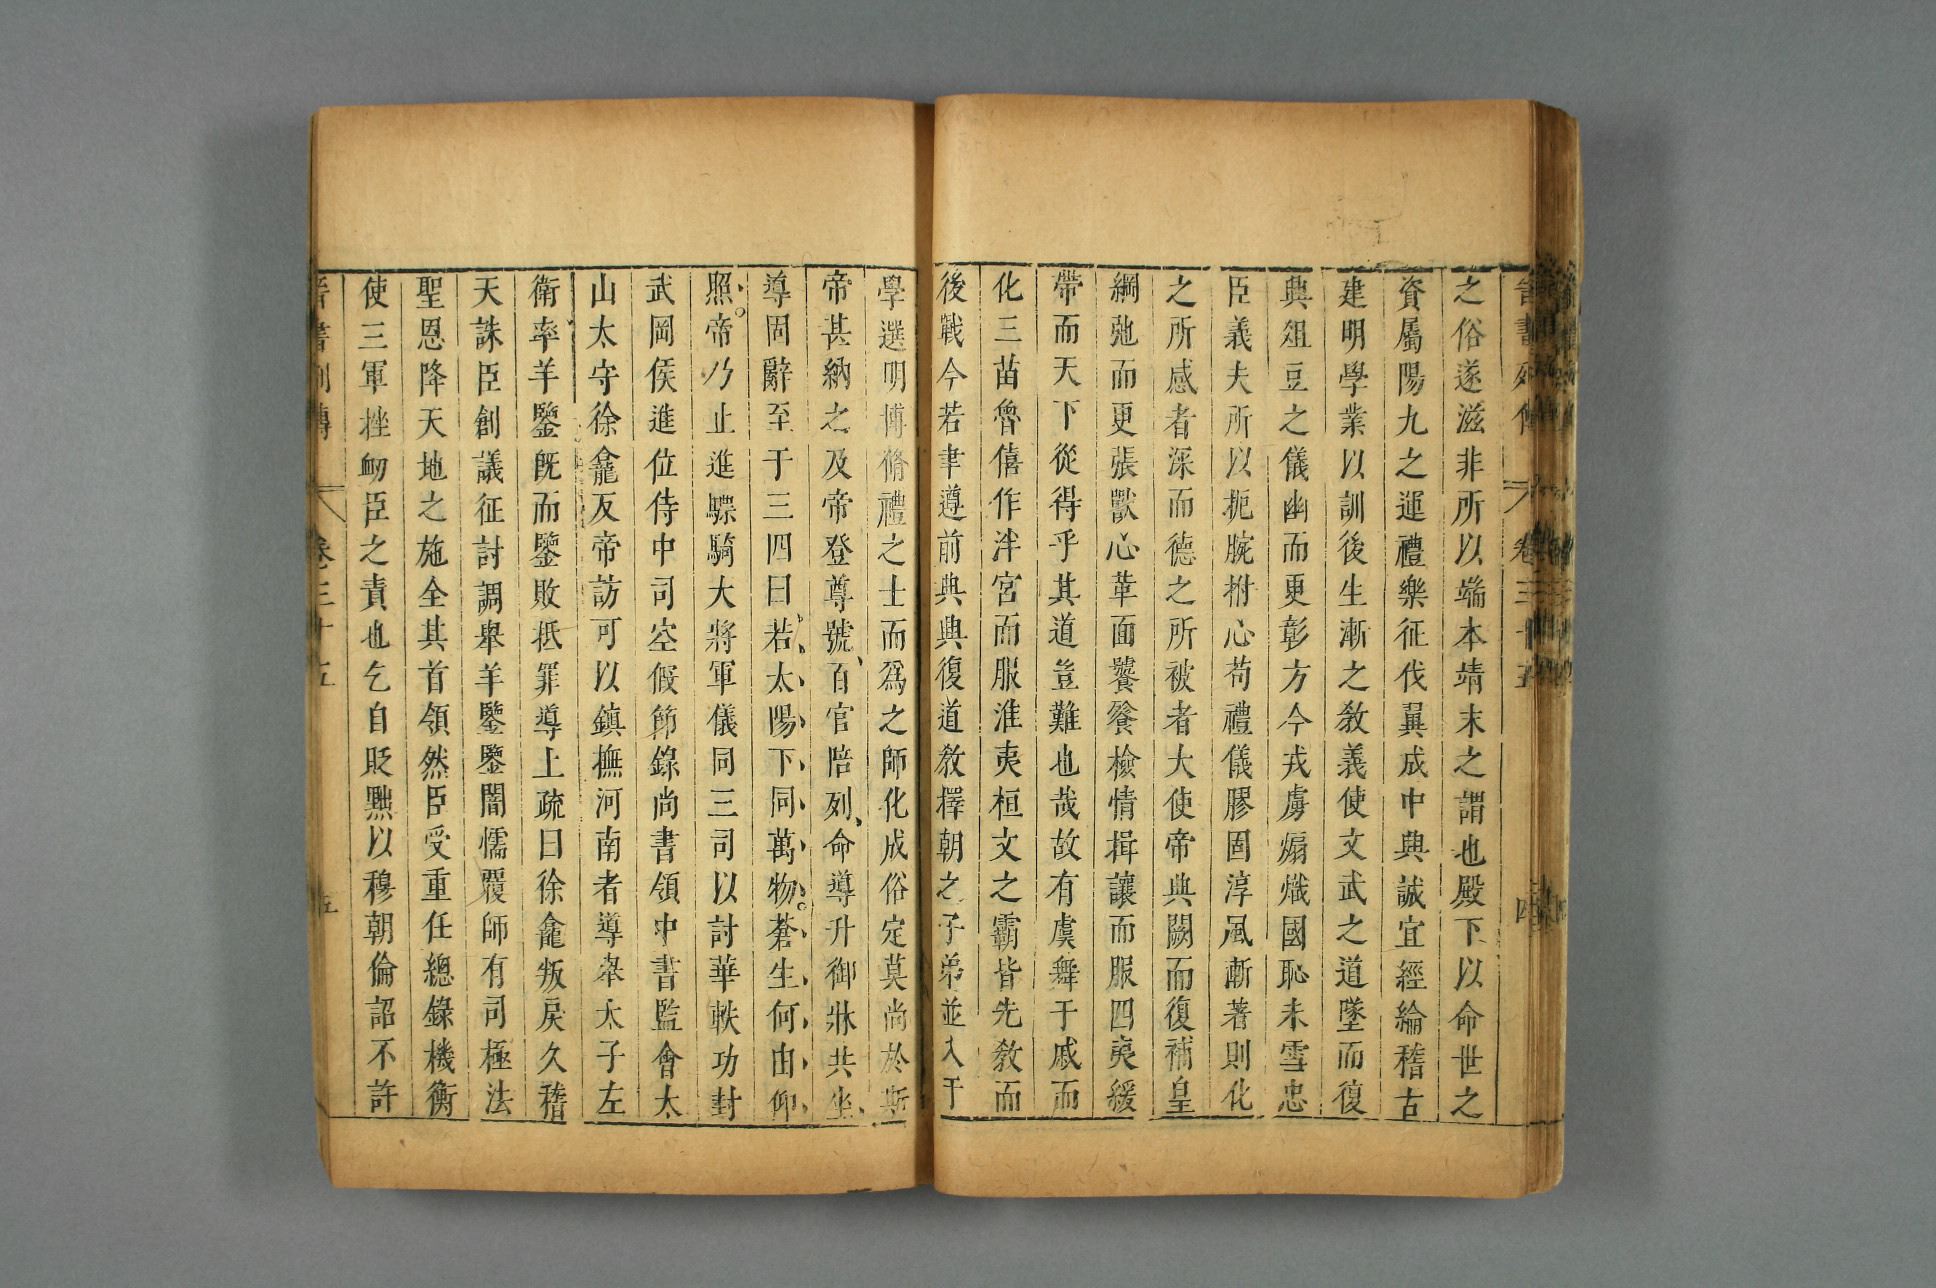 晉書列傳 卷三十五 四
之俗遂滋非所以端本靖末之謂也殿下以命世之
資屬陽九之運禮樂征伐翼成中興誠宜經綸稽古
建明學業以訓後生漸之敎義使文武之道墜而復
興俎豆之儀幽而更彰方今戎虜煽熾國恥未雪忠
臣義夫所以扼腕拊心苟禮儀膠固淳風漸著則化
之所感者深而德之所被者大使帝典闕而復補皇
綱弛而更張獸心革面饕餮檢情揖讓而服四夷緩
帶而天下從得乎其道豈難也哉故有虞舞干戚而
化三苗魯僖作泮宮而服淮夷桓文之霸皆先敎而
後戰今若聿遵前典興復道敎擇朝之子弟並入于
學選明博脩禮之士而爲之師化成俗定莫尚於斯
帝甚納之及帝登尊號百官陪列命導升御牀共坐
導固辭至于三四曰若太陽下同萬物蒼生何由仰
照帝乃止進驃騎大將軍儀同三司以討華軼功封
武岡侯進位侍中司空假節錄尚書領中書監會太
山太守徐龕反帝訪可以鎮撫河南者導舉太子左
衛率羊鑒旣而鑒敗抵罪導上疏曰徐龕叛戾久稽
天誅臣創議征討調舉羊鑒鑒闇懦覆師有司極法
聖恩降天地之施全其首領然臣受重任總錄機衡
使三軍挫衂臣之責也乞自貶黜以穆朝倫詔不許
晉書列傳 卷三十五 五